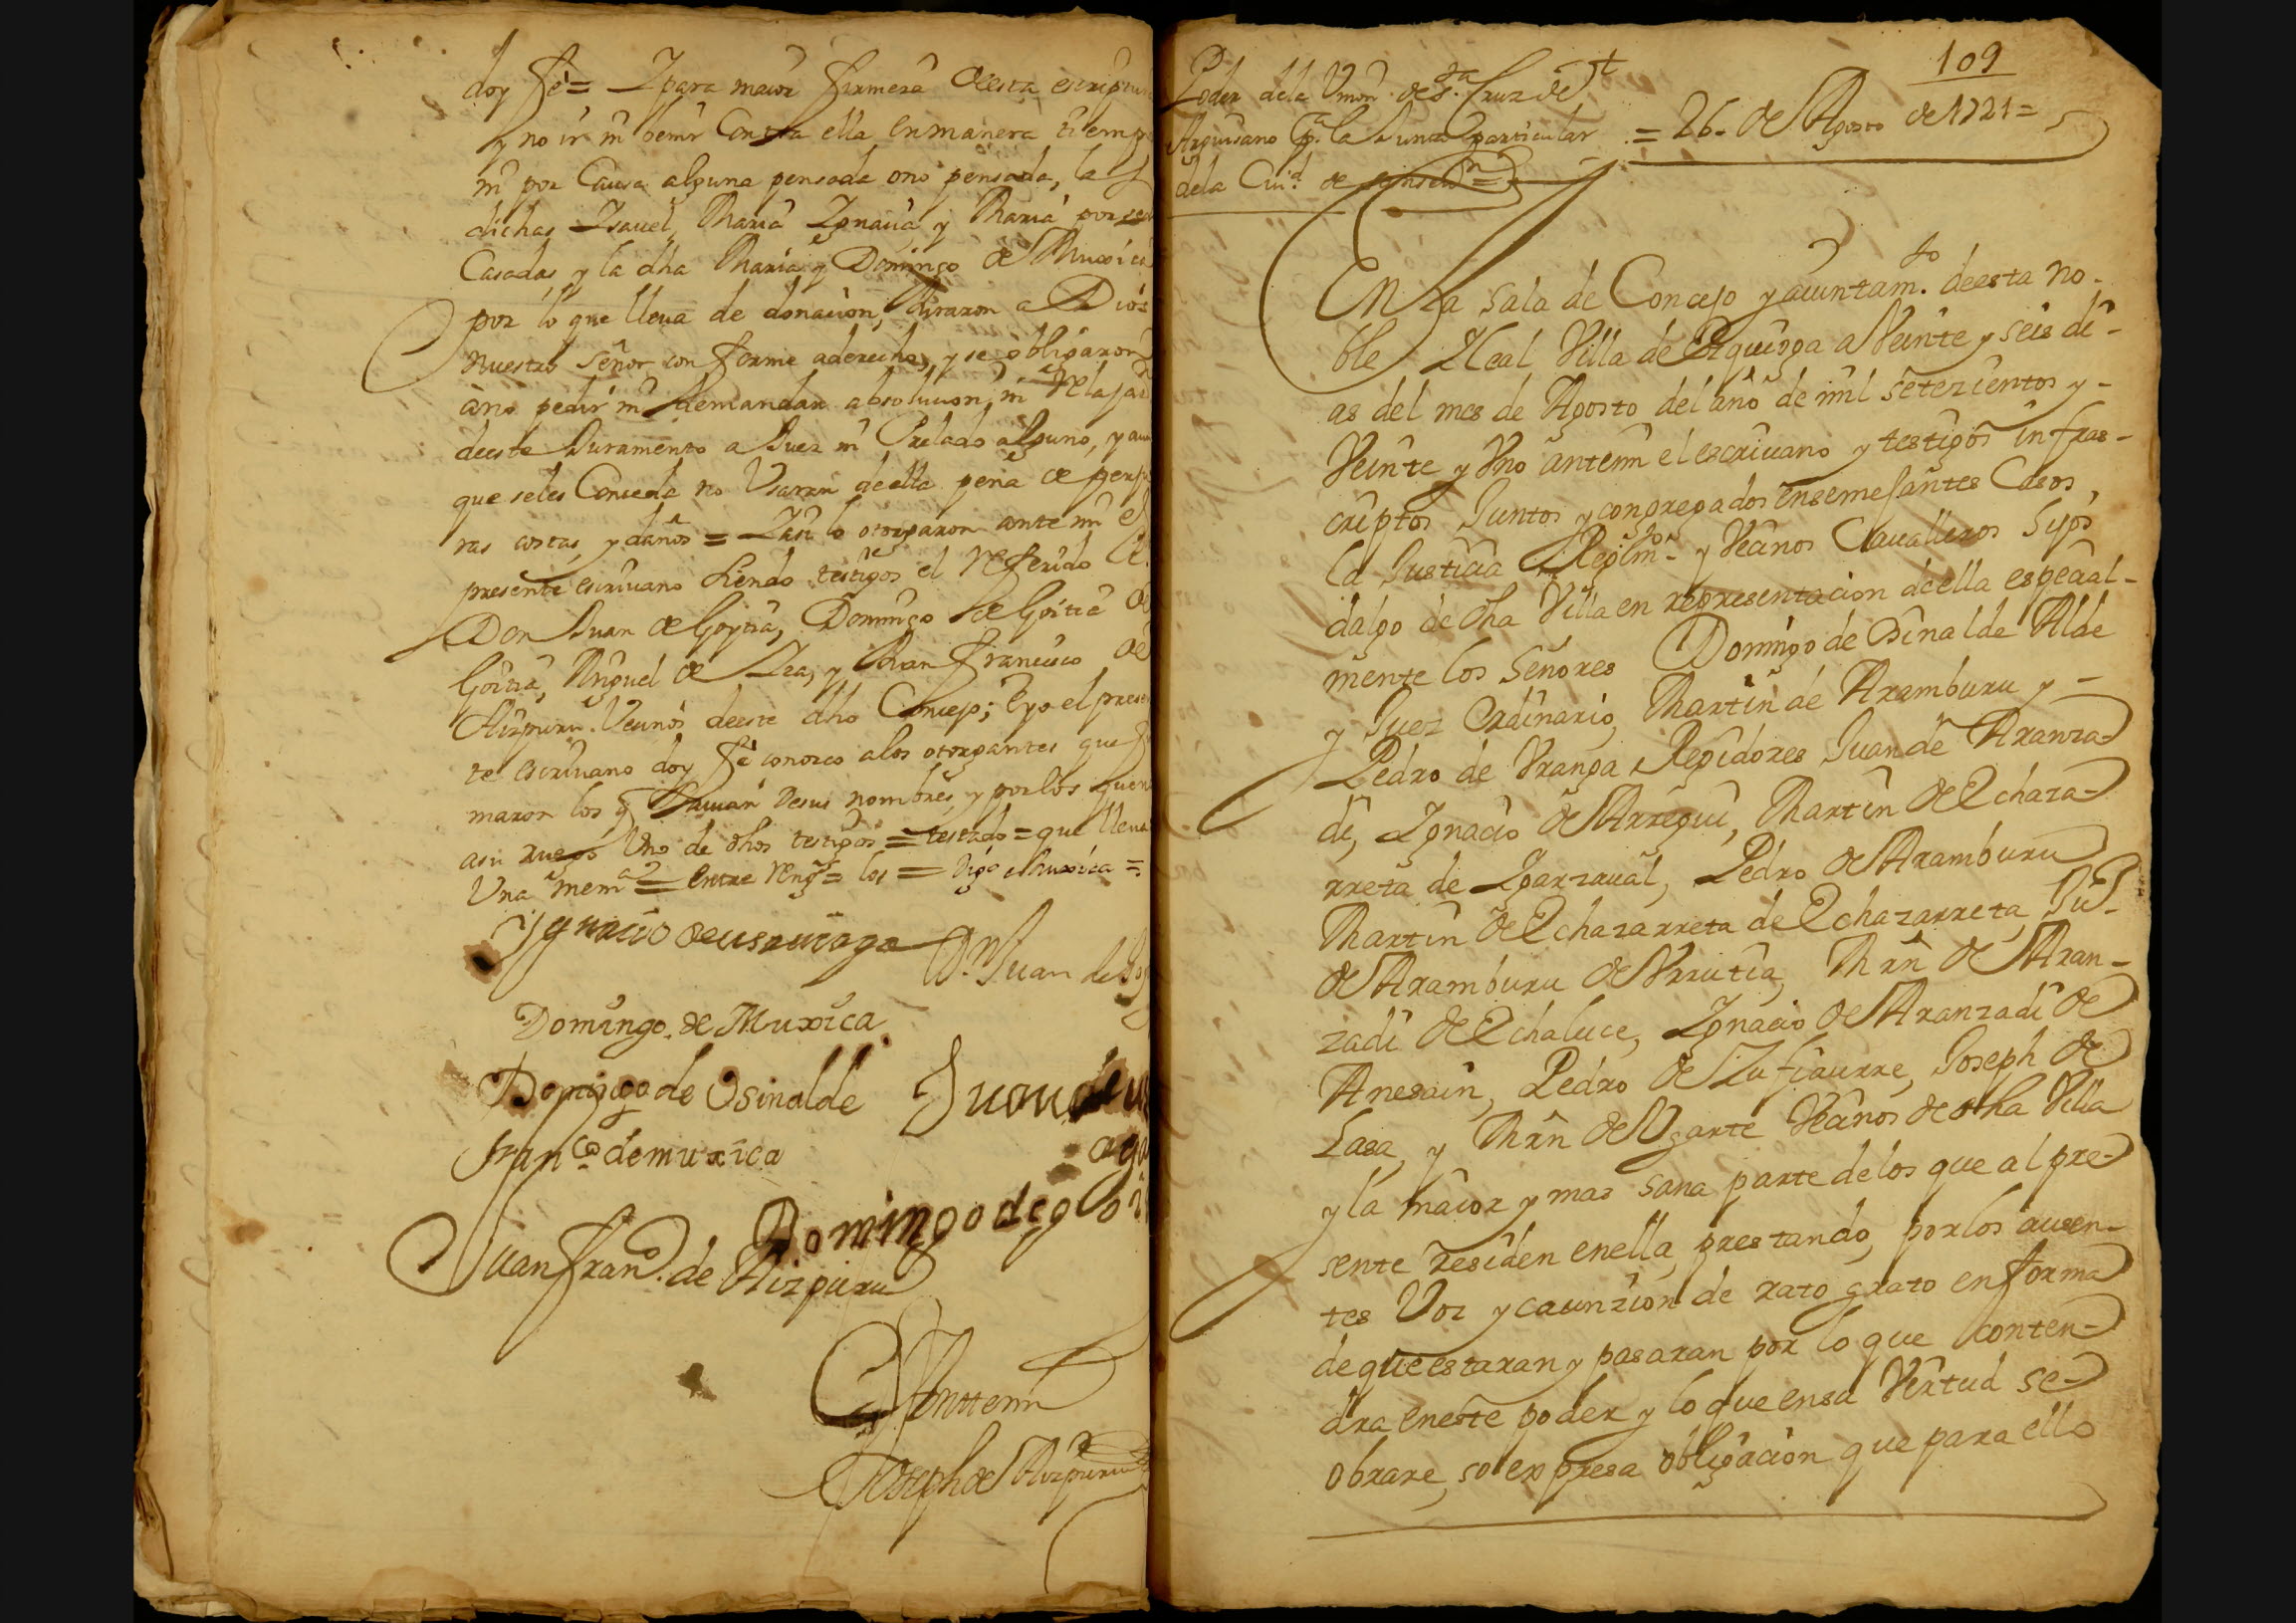 doy fé = Y para maior firmeza de esta escriptura
y no ir ni benir Contra ella en manera tiempo
ni por Causa alguna pensada o no pensada, las
dichas Ysauel, Maria Ygnacia y Maria por ser
Casadas, y la dha Maria y Domingo de Muxica
por lo que lleua de donacion, Juraron a Dios
nuestro Señor, conforme a derecho, y se obligaron
à no pedir ni demandar absolucion, ni relajacion
de este Juramento a Juez ni Prelado alguno, y aun
que seles Conceda no Usaran de ella pena de perju
ras costas, y daños = Y asi lo otorgaron ante mi el
presente escriuano siendo testigos el referido
Don Juan de Goytia, Domingo de Goitia de
Goitia, Miguel de Lea, y Juan Francisco de
Aizpuru Vecinos de este dho Concejo; E yo el presen
te escriuano doy fé conozco a los otorgantes que fir
maron los q̃ sauian de sus nombres, y por los que no
a su ruego Uno de dhos testigos = testado = que lleua
Una mem.ª = entre reng.s = los = digo Muxica =
Ygnacio de usauiaga
D.n Juan de Goy
Domingo de Muxica
Domingo de Osinalde
Juan de
aga
fran.co de muxica
Domingo de goi
Juan Fran.co de Aizpuru
Antemi
Joseph de Aizpuru
109
Poder de la Union de S.ta Cruz de
Arguisano p.a la Junta particular
de la Ciu.d de
= 26 de Agosto de 1721 =
En La sala de Concejo y aiuntam.to de esta no-
ble y Leal Villa de Ezquioga a Veinte y seis di-
as del mes de Agosto del año de mil setezientos y -
Veinte y Uno antemi el escriuano y testigos infras-
criptos Juntos y congregados en semejantes Casos,
la Justicia Regim.to y Vecinos Caualleros hijos
dalgo de dha Villa en representacion de ella especial-
mente los Señores Domingo de Osinalde Alde
y Juez Ordinario, Martin de Aramburu y -
Pedro de Vranga Regidores Juan de Aranza-
di, Ygnacio de Arregui, Martin de Echaza-
rreta de Ygarzaual, Pedro de Aramburu
Martin de Echazarreta de Echazarreta, Ju.º
de Aramburu de Vrrutia, Mrn de Aran-
zadi de Echaluce, Ygnacio de Aranzadi de
Anesain, Pedro de Zufiaurre, Joseph de
Lasa, y Mrn de Vgarte Vecinos de dha Villa
y la maior y mas sana parte de los que al pre-
sente residen en ella, prestando, por los ausen-
tes Voz y caunzion de rato grato en forma
de que estaran y pasaran por lo que conten-
dra en este poder y lo que en sa Vertud se-
obrare, so expresa obligacion que para ello